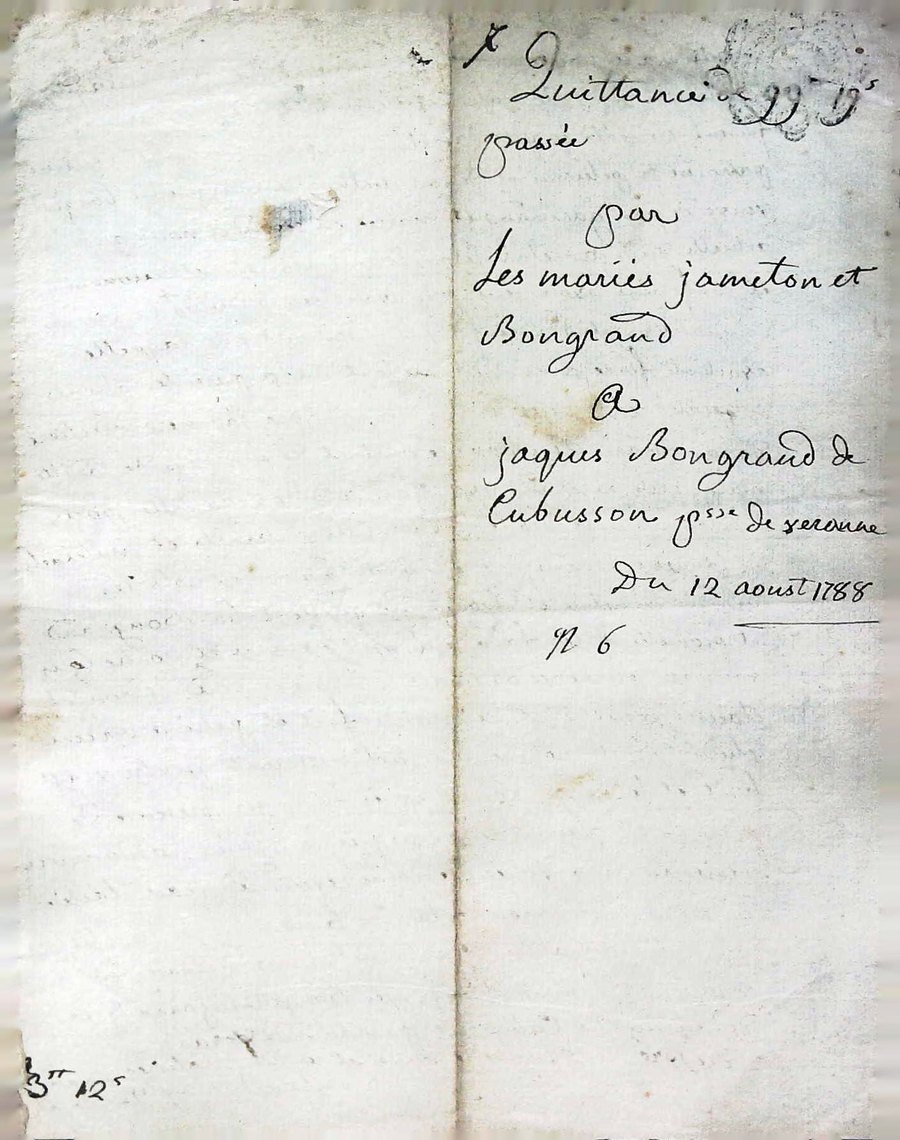 7
Quittance de 99ᵗᵗ 19ˢ
passée
par
Les mariés jameton et
Bongrand
A
jaques Bongrand de
Cubusson pˢˢᵉ de veranne
Du 12 aoust 1788
N 6
3ᵗᵗ 12ˢ